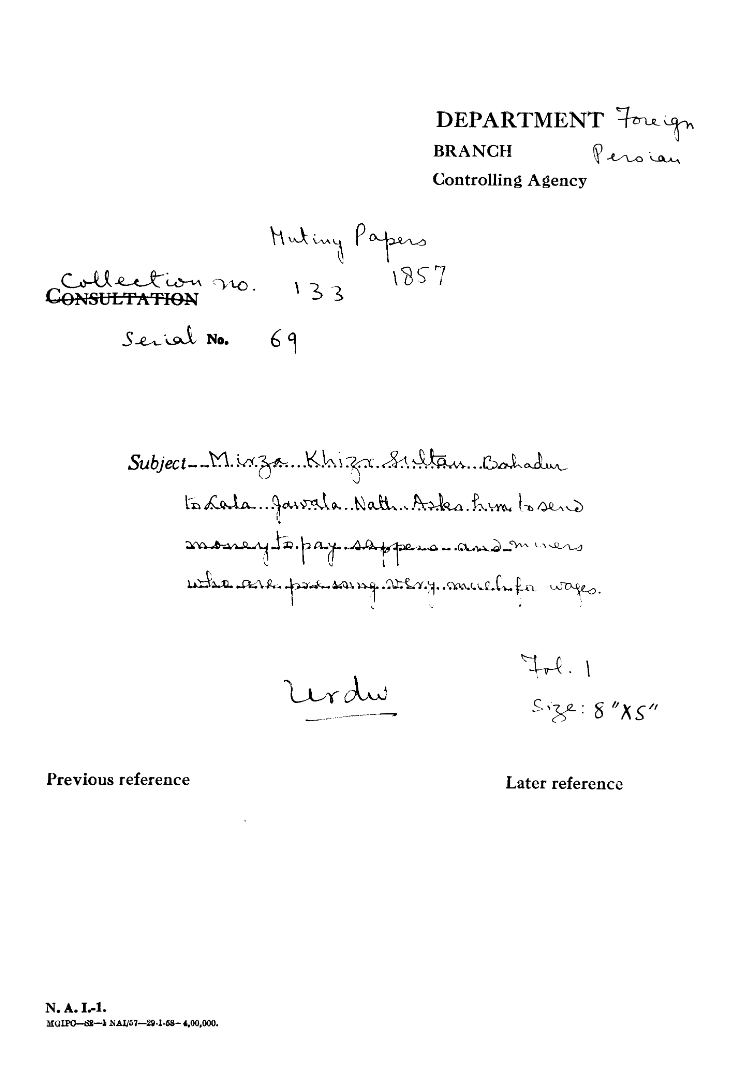 DEPARTMENT Foreign
BRANCH Persian
Controlling Agency
Mutiny Papers
1857
Collection no. 133
CONSULTATION
Serial No. 69
Subject--Mirza Khizr Sultan Bahadur
to Lala Jawala Nath. Asks him to send
money to pay sappers and miners
who are pressing very much for wages.
Urdu
Fol. 1
Size: 8"X5"
Previous reference
Later reference
N. A. I.-1.
MGIPC—S2—1 NAI/57—29-1-58—4,00,000.